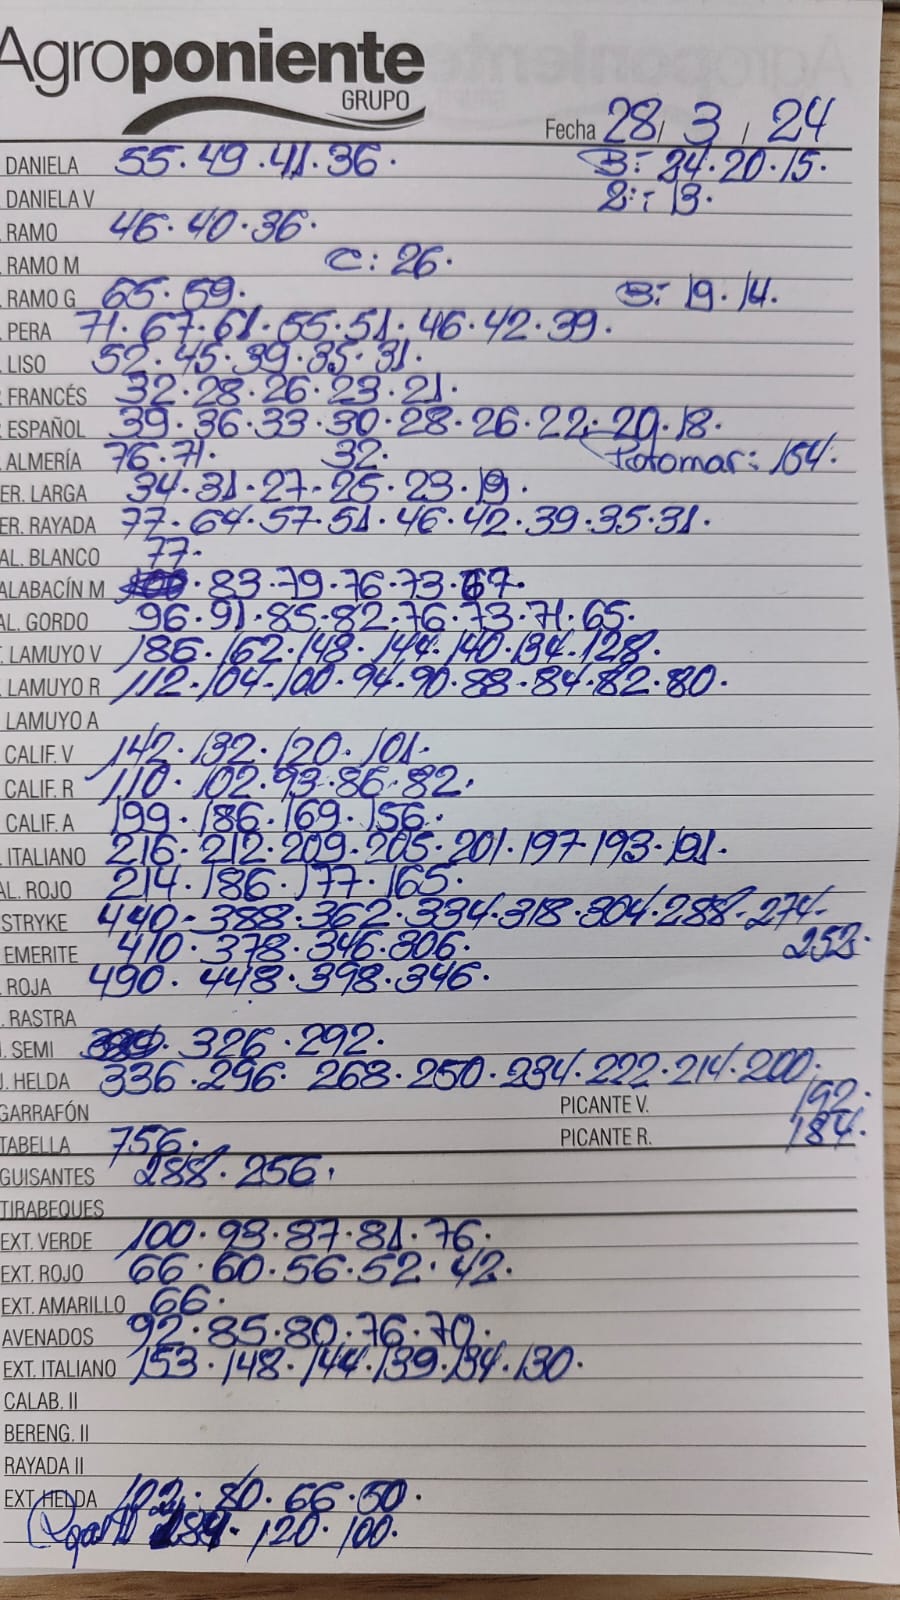 Agroponiente
GRUPO
Fecha 28/ 3 / 24
DANIELA 55·49·41·36· B: 24·20·15·
DANIELA V 2ª: 13·
RAMO 46·40·36·
RAMO M C: 26·
RAMO G 65·59· B: 19·14·
PERA 71·67·61·55·51·46·42·39·
LISO 52·45·39·35·31·
FRANCÉS 32·28·26·23·21·
ESPAÑOL 39·36·33·30·28·26·22·20·18·
ALMERÍA 76·71· 32· Potomar: 154·
ER. LARGA 34·31·27·25·23·19·
ER. RAYADA 77·64·57·51·46·42·39·35·31·
AL. BLANCO 77·
ALABACÍN M ·83·79·76·73·67·
AL. GORDO 96·91·85·82·76·73·71·65·
LAMUYO V 186·162·148·144·140·134·128·
LAMUYO R 112·104·100·94·90·88·84·82·80·
LAMUYO A
CALIF. V 142·132·120·101·
CALIF. R 110·102·93·86·82·
CALIF. A 199·186·169·156·
ITALIANO 216·212·209·205·201·197·193·191·
AL. ROJO 214·186·177·165·
STRYKE 440-388·362·334·318·304·288-274-
EMERITE 410·378·346·306· 253·
ROJA 490·448·398·346·
RASTRA
SEMI ·326·292·
J. HELDA 336·296·268·250·234·222·214·200·
GARRAFÓN PICANTE V. 192·
TABELLA 756· PICANTE R. 184·
GUISANTES 288·256·
TIRABEQUES
EXT. VERDE 100·93·87·81·76·
EXT. ROJO 66·60·56·52·42·
EXT. AMARILLO 66·
AVENADOS 92·85·80·76·70·
EXT. ITALIANO 153·148·144·139·134·130·
CALAB. II
BERENG. II
RAYADA II
EXT. HELDA ·80·66·50·
·120·100·